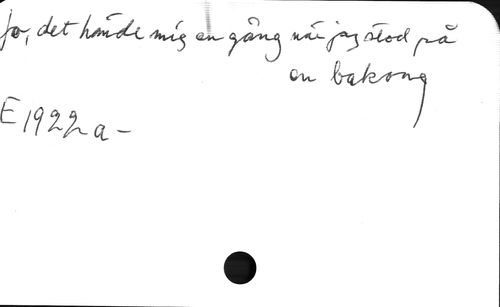 jo, det hände mig en gång när jag stod på
en bakong
E 1922 a –